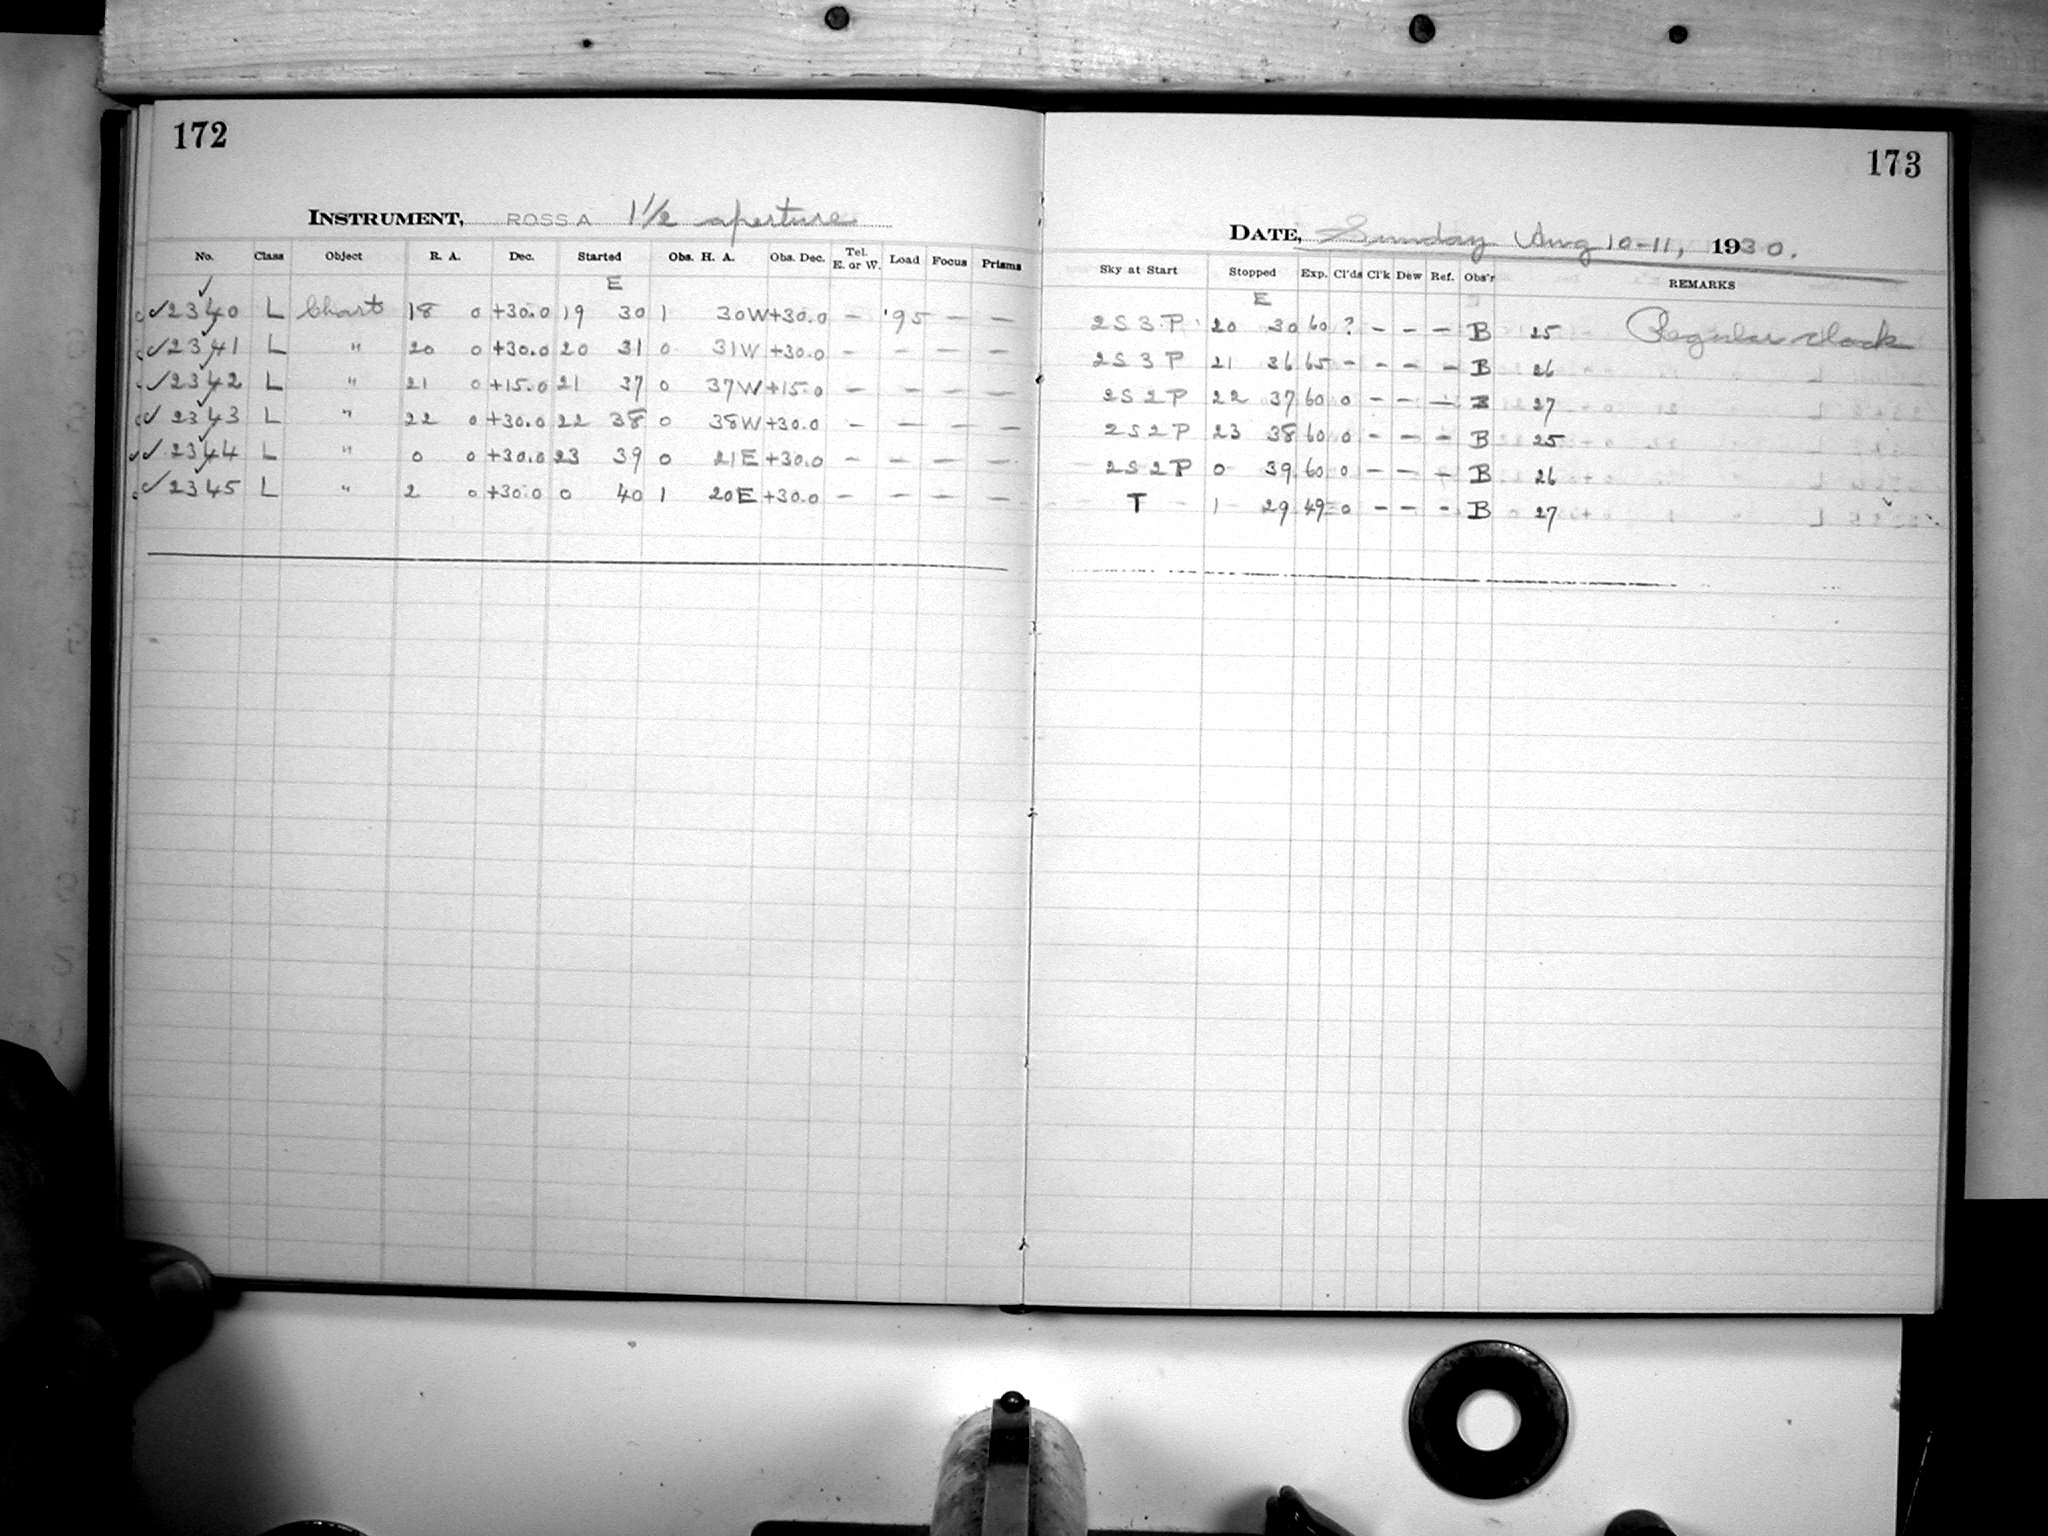 172
INSTRUMENT, ROSS A 1 1/2 aperture
No. Class Object R. A. Dec. Started Obs. H. A. Obs. Dec. Tel. E. or W. Load Focus Prisms
E
✓2340 L Chart 18 0 +30.0 19 30 1 30W +30.0 – '95 – –
✓2341 L " 20 0 +30.0 20 31 0 31W +30.0 – – – –
✓2342 L " 21 0 +15.0 21 37 0 37W +15.0 – – – –
✓2343 L " 22 0 +30.0 22 38 0 38W +30.0 – – – –
✓2344 L " 0 0 +30.0 23 39 0 21E +30.0 – – – –
✓2345 L " 2 0 +30.0 0 40 1 20E +30.0 – – – –
173
DATE, Sunday Aug 10-11, 1930.
Sky at Start Stopped Exp. Cl'ds Cl'k Dew Ref. Obs'r REMARKS
E
2S 3 P 20 30 60 ? – – – B 25 Regular clock
2S 3 P 21 36 65 – – – – B 26
2S 2 P 22 37 60 0 – – – B 27
2S 2 P 23 38 60 0 – – – B 25
2S 2 P 0 39 60 0 – – – B 26
T 1 29 49 0 – – – B 27